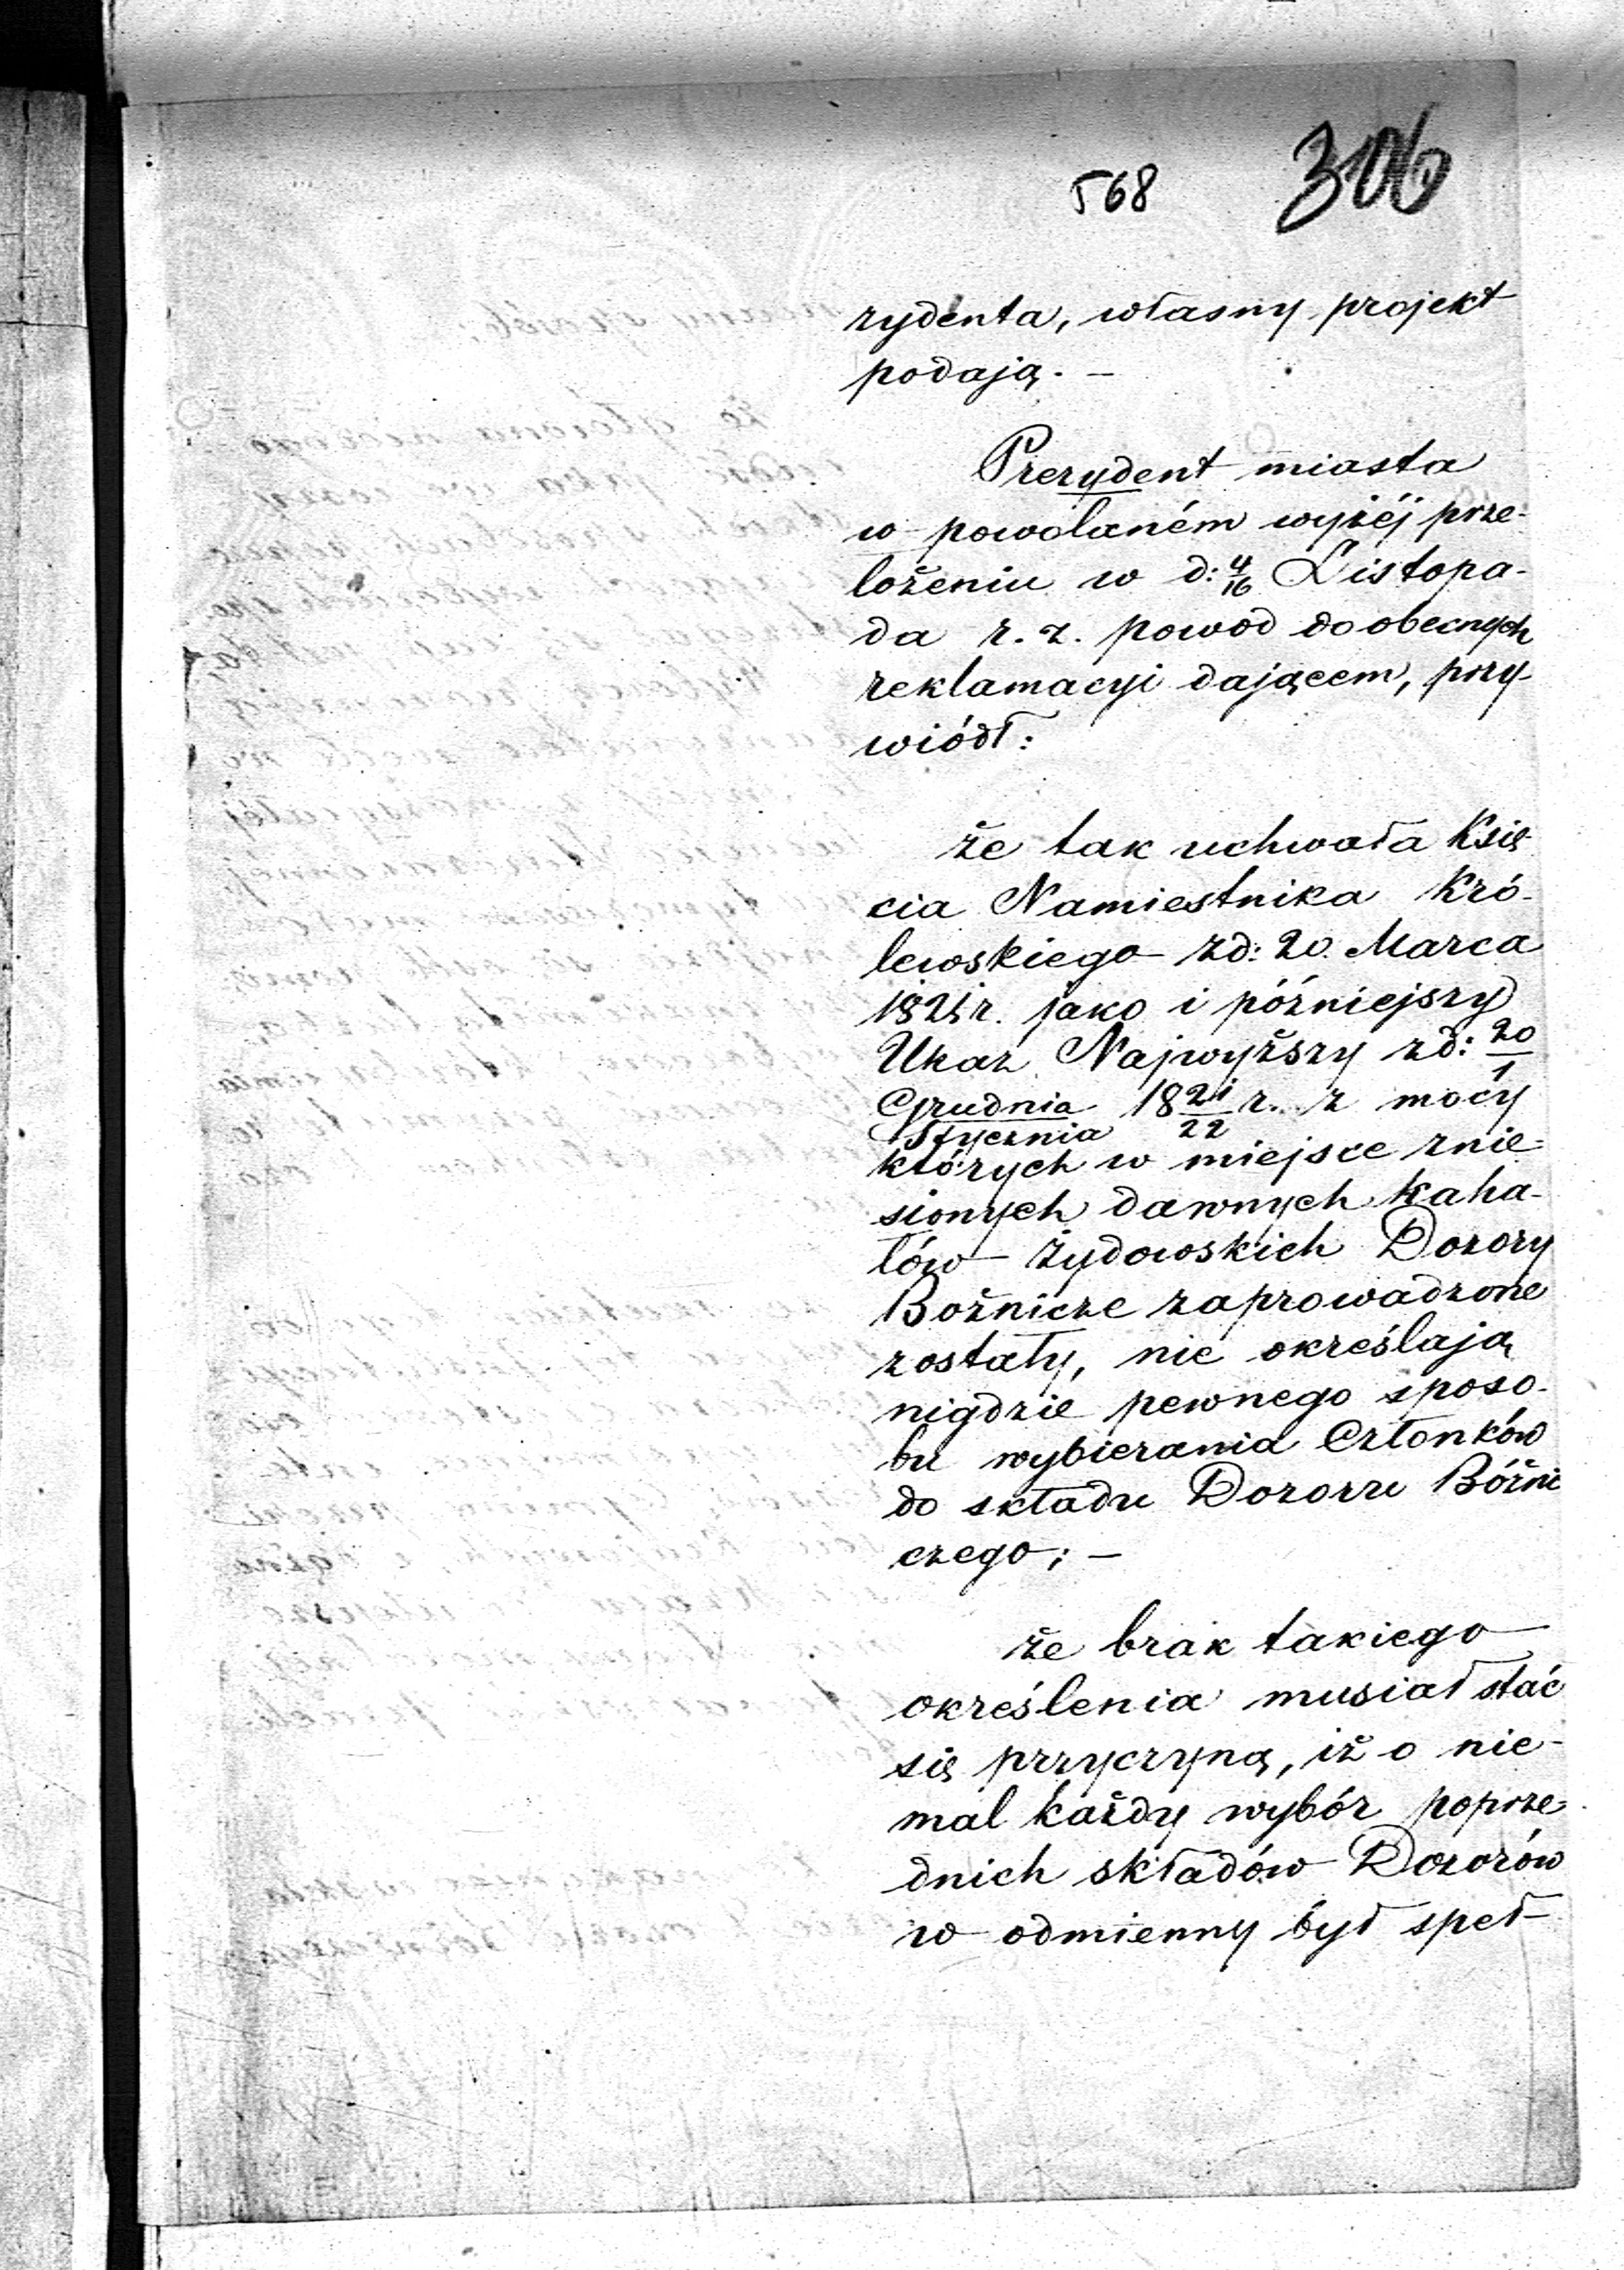 568 306
zydenta, własny projekt
podają. –
Prezydent miasta
w powołaném wyżéj prze-
łożeniu w d: 4/16 Listopa-
da r. z. powód do obecnych
reklamacyi dającem, przy-
wiódł:
że tak uchwała Księ-
cia Namiestnika Kró-
lewskiego z d: 20. Marca
1821 r. jako i późniejszy
Ukaz Najwyższy z d: 20/1
Grudnia/Stycznia 18 21/22 r. z mocy
których w miejsce znie-
sionych dawnych kaha-
łów żydowskich Dozory
Bożnicze zaprowadzone
zostały, nie określają
nigdzie pewnego sposo-
bu wybierania Członków
do składu Dozoru Bóżni
czego; –
że brak takiego
określenia musiał stać
się przyczyną, iż o nie-
mal każdy wybór poprze-
dnich składów Dozorów
w odmienny był speł-